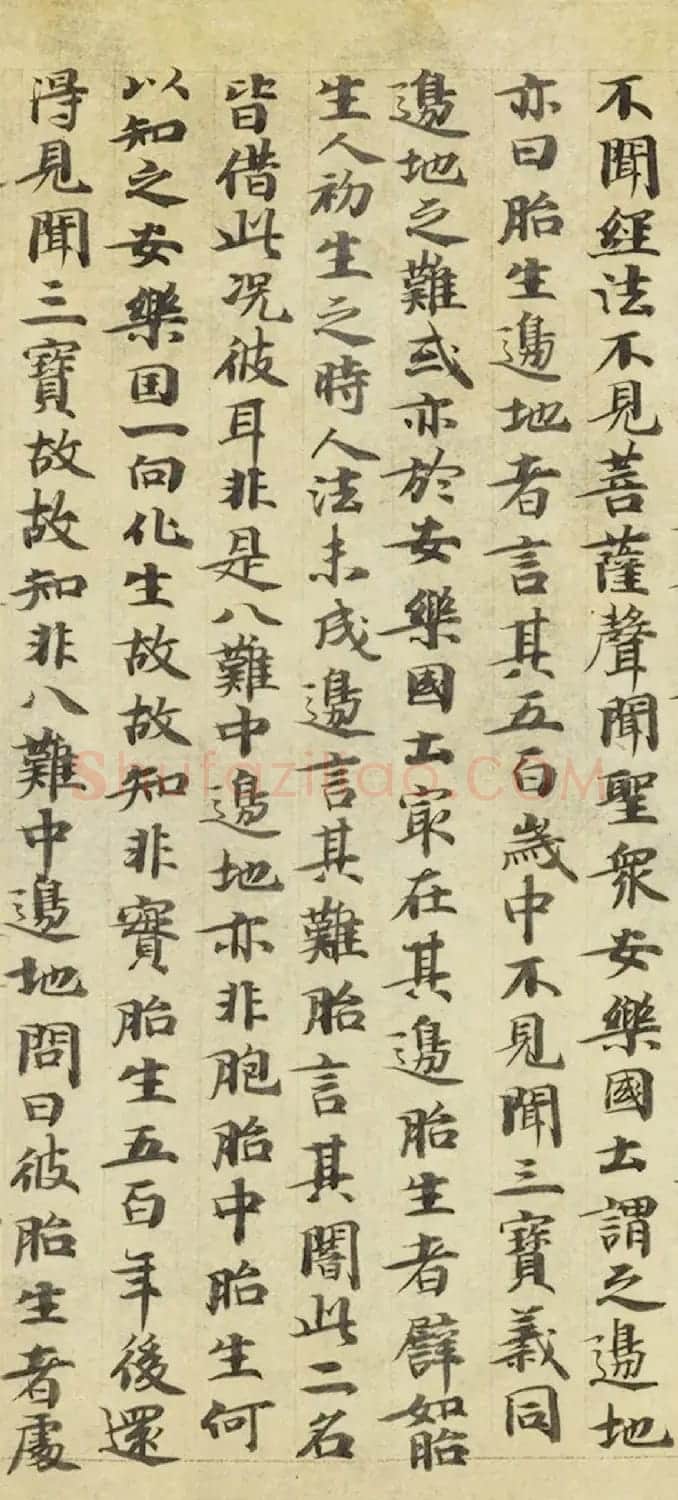 不聞經法不見菩薩聲聞聖衆安樂國土謂之邊地
亦曰胎生邊地者言其五百歲中不見聞三寶義同
邊地之難或亦於安樂國土冣在其邊胎生者辟如胎
生人初生之時人法未成邊言其難胎言其闇此二名
皆借此况彼耳非是八難中邊地亦非胞胎中胎生何
以知之安樂国一向化生故故知非實胎生五百年後還
得見聞三寶故故知非八難中邊地問曰彼胎生者處
Shufaziliao.COM